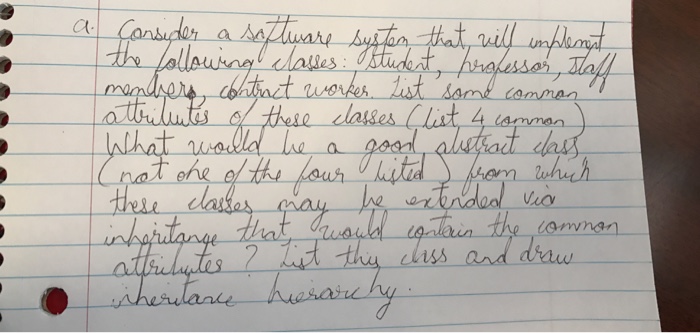 a. Consider a software system that will implement
the following classes: Student, professor, Staff
members, contract worker. List some common
attributes of these classes (list 4 common)
What would be a good abstract class
(not one of the four listed) from which
these classes may be extended via
inheritance that would contain the common
attributes? List this class and draw
inheritance hierarchy.